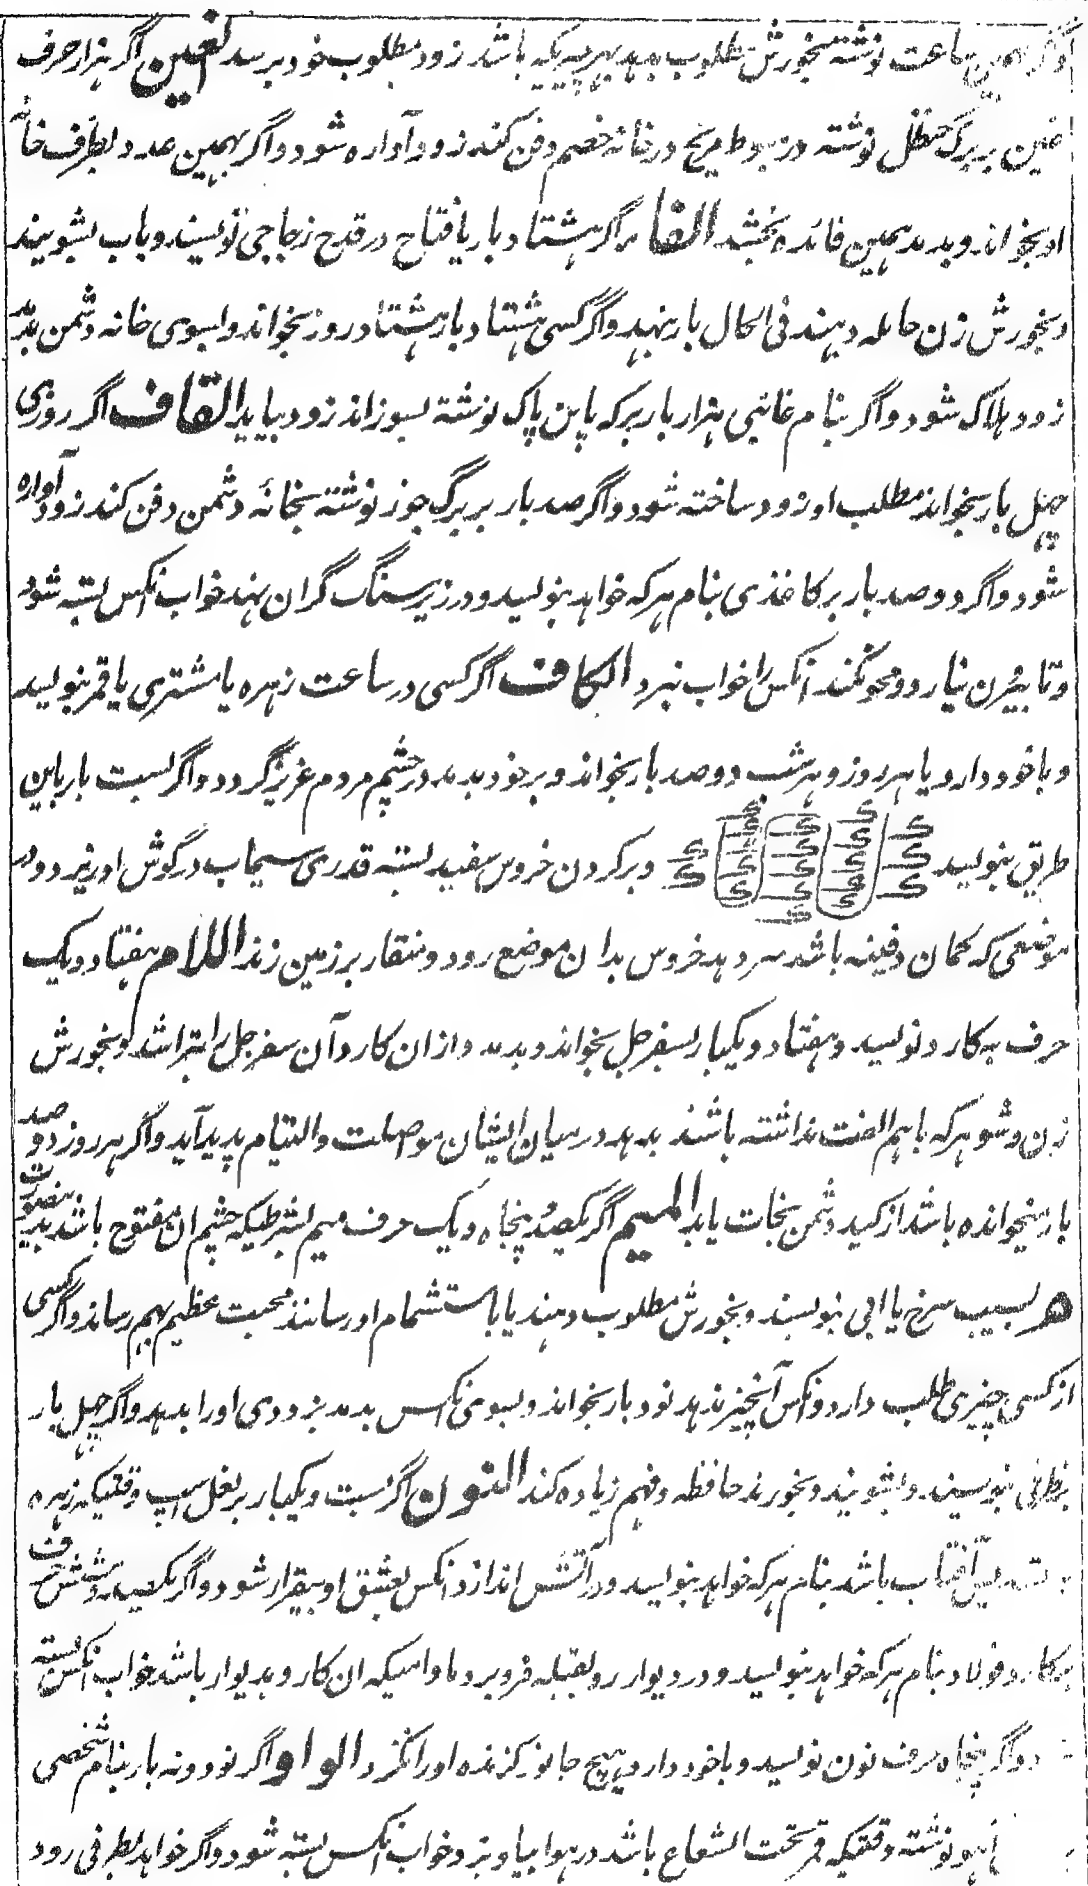 و اگر بهمین ساعت نوشته بخورش مطلوب بدهد بهر چیزیکه باشد زود بمطلوب خود برسد الغین اگر هزار حرف
غین بر برگ حنظل نوشته در هبوط مریخ در خانهٔ خصم دفن کند زود آواره شود و اگر بهمین عدد بطرف خانهٔ
او بخواند و بدمد همین فائده بخشد الفا اگر هشتاد بار یافتاح در قدح زجاجی نویسند و باب بشویند
و بخورش زن حامله دهند فی الحال بار بنهد و اگر کسی هشتاد بار هشتاد روز بخواند و بسوی خانه دشمن بدمد
زود هلاک شود و اگر بنام غائبی هزار بار برکه پابن پاک نوشته بسوزاند زود بیاید القاف اگر روزی
چهل بار بخواند مطلب او زود ساخته شود و اگر صد بار بر برگ جوز نوشته بخانهٔ دشمن دفن کند زود آواره
شود و اگر دو صد بار بر کاغذی بنام هرکه خواهد بنویسد و در زیر سنگ گران بنهد خواب انکس بسته شود
و تا بیرون نیارد و محو نکند انکس را خواب نبرد الکاف اگر کسی در ساعت زهره یا مشتری یا قمر بنویسد
و با خود دارد یا هر روز و هر شب دو صد بار بخواند و بر خود بدمد در چشم مردم عزیز گردد و اگر بیست بار باین
طریق بنویسد و بر گردن خروس سفید بسته قدری سیماب در گوش او ریزد و در
موضعی که گمان دفینه باشد سر دهد خروس بدان موضع رود و منقار بر زمین زند اللام هفتاد و یک
حرف به کارد نویسد و هفتاد و یکبار بسفرجل بخواند و بدمد و از ان کارد آن سفرجل را بتراشد و بخورش
زن و شو هرکه باهم الفت نداشته باشند بدهد درمیان ایشان مواصلت و التیام پدید آید و اگر هر روز دو صد
بار میخوانده باشد از کید دشمن نجات یابد المیم اگر یکصد و پنجاه و یک حرف میم بشرطیکه چشم ان مفتوح باشد بدینصورت
ه بسیب سرخ یا ابی بنویسند و بخورش مطلوب دهند یا باستشمام او رسانند محبت عظیم بهم رساند و اگر کسی
از کسی چیزی طلب دارد و انکس آنچیز ندهد نود بار بخواند و بسوی انکس بدمد بزودی اورا بدهد و اگر چهل بار
بظرفی بنویسند و بشویند و بخورند حافظه و فهم زیاده کند النون اگر بیست و یکبار بر نعل اسپ وقتیکه زهره
آفتاب باشد بنام هرکه خواهد بنویسد و در آتش اندازد انکس بعشق او بیقرار شود و اگر یکصد و شش حرف
بر کارد فولاد بنام هرکه خواهد بنویسد و در دیوار رو بقبله فرو برد مادامیکه ان کارد بدیوار باشد خواب انکس بسته
شود و اگر پنجاه حرف نون نویسد و با خود دارد هیچ جانور گزنده اورا نگزد الواو اگر نود و نه بار بنام شخصی
نوشته وقتیکه قمر تحت الشعاع باشد در هوا بیاویزد خواب انکس بسته شود و اگر خواهد بطرفی رود